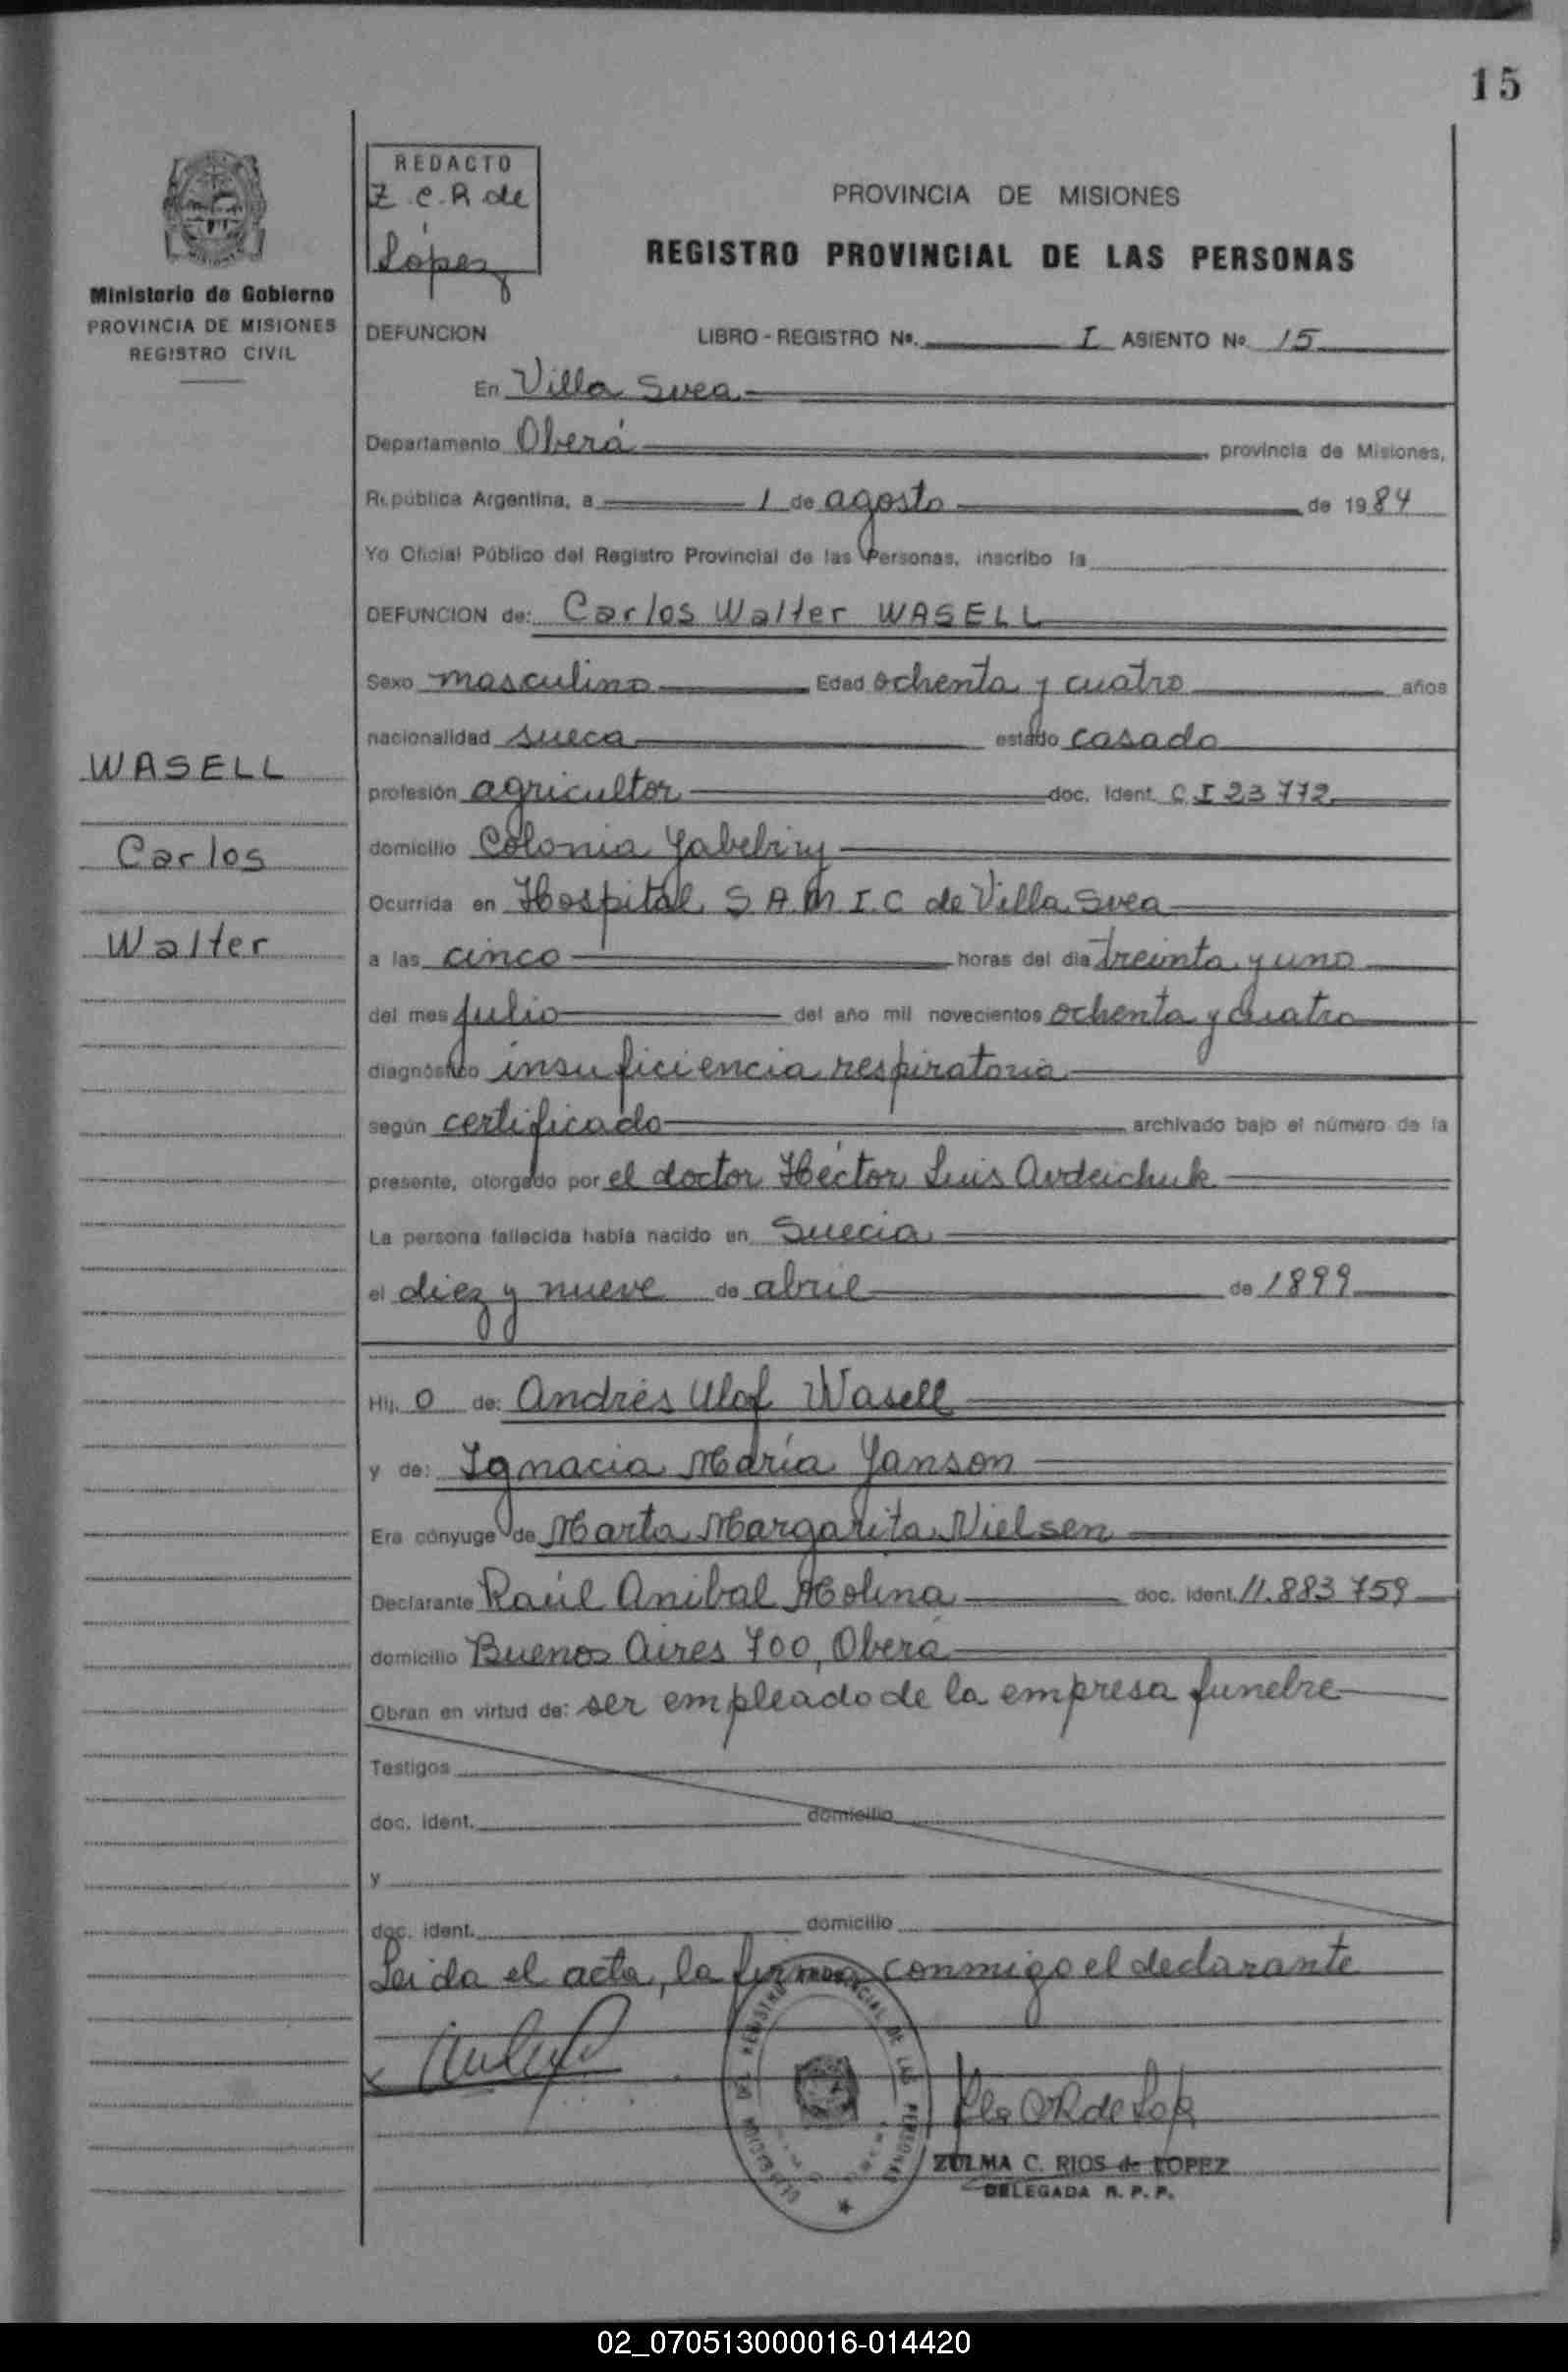 15
REDACTO
Z.C.R de
López
Ministerio de Gobierno
PROVINCIA DE MISIONES
REGISTRO CIVIL
PROVINCIA DE MISIONES
REGISTRO PROVINCIAL DE LAS PERSONAS
DEFUNCION LIBRO - REGISTRO Nº. I ASIENTO Nº 15
En Villa Svea
Departamento Oberá provincia de Misiones,
República Argentina, a 1 de agosto de 1984
Yo Oficial Público del Registro Provincial de las Personas, inscribo la
DEFUNCION de: Carlos Walter WASELL
Sexo masculino Edad ochenta y cuatro años
nacionalidad sueca estado casado
WASELL
profesión agricultor doc. Ident. C I 23 772
Carlos
domicilio Colonia Yabebiry
Ocurrida en Hospital S.A.M.I.C de Villa Svea
Walter
a las cinco horas del día treinta y uno
del mes julio del año mil novecientos ochenta y cuatro
diagnóstico insuficiencia respiratoria
según certificado archivado bajo el número de la
presente, otorgado por el doctor Héctor Luis Avdeichuk
La persona fallecida había nacido en Suecia
el diez y nueve de abril de 1899
Hij o de: Andrés Ulof Wasell
y de: Ignacia María Yanson
Era cónyuge de Marta Margarita Nielsen
Declarante Raúl Anibal Molina doc. ident. 11.883 759
domicilio Buenos Aires 700, Oberá
Obran en virtud de: ser empleado de la empresa funebre
Testigos
doc. ident. domicilio
y
doc. ident. domicilio
Leida el acta, la firma conmigo el declarante
REGISTRO PROVINCIAL DE LAS PERSONAS
ZULMA C. RIOS de LOPEZ
DELEGADA R. P. P.
02_070513000016-014420